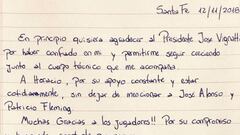 Santa Fe 12/11/2018
En principio quisiera agradecer al Presidente José Vignatti
por haber confiado en mi y permitirme seguir creciendo
junto al cuerpo técnico que me acompaña.
A Horacio, por su apoyo constante y estar
cotidianamente, sin dejar de mencionar a José Alonso y
Patricio Fleming.
Muchas Gracias a los jugadores!! Por su compromiso